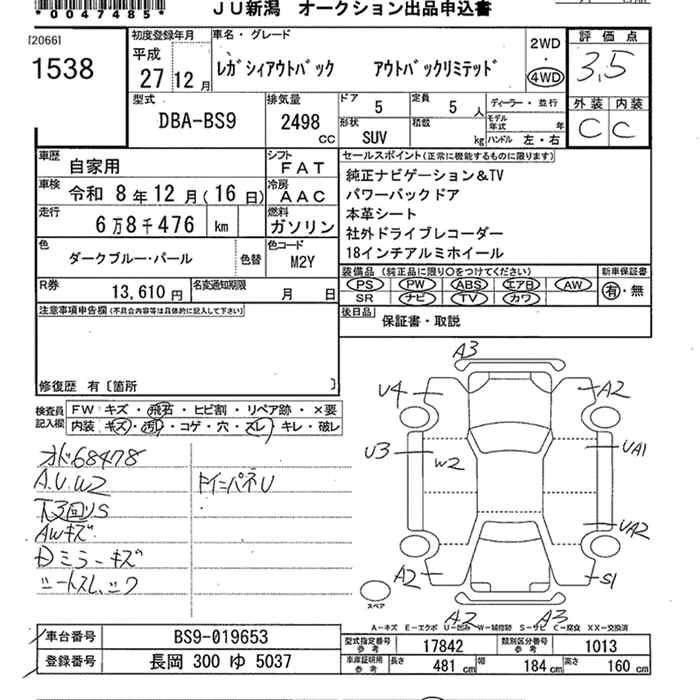 *0047485*
JU新潟 オークション出品申込書
[2066]
1538
初度登録年月
平成
27 12月
車名・グレード
レガシィアウトバック アウトバックリミテッド
2WD
・
4WD
評価点
3.5
外装 内装
C C
型式
DBA-BS9
排気量
2498 cc
ドア 5
定員 5 人
ディーラー・並行
形状 SUV
積載 kg
モデル年式 年
ハンドル 左・右
車歴 自家用
シフト FAT
車検 令和 8年12月(16日)
冷房 AAC
走行 6万8千476 km
燃料 ガソリン
色 ダークブルー・パール
色替
色コード M2Y
R券 13,610円
名変通知期限 月 日
セールスポイント(正常に機能するものに限ります)
純正ナビゲーション&TV
パワーバックドア
本革シート
社外ドライブレコーダー
18インチアルミホイール
装備品(純正品に限り○をつけてください)
新車保証書
PS PW ABS エアB AW
有・無
SR ナビ TV カワ
後日品 保証書・取説
注意事項申告欄(不具合内容等は具体的に記入して下さい)
修復歴 有〔箇所 〕
検査員記入欄
FW キズ・飛石・ヒビ割・リペア跡・×要
内装 キズ・汚れ・コゲ・穴・スレ・キレ・破レ
オド68478
A.U.W2
トインパネU
下3回りS
AWキズ
Dミラーキズ
シートスレ、シワ
A3
U4
A2
U3
W2
UA1
UA2
A2
S1
スペア
A2
A3
A-キズ E-エクボ U-凹み W-補修跡 S-サビ C-腐食 XX-交換済
車台番号 BS9-019653
登録番号 長岡 300 ゆ 5037
型式指定番号 参考 17842
類別区分番号 参考 1013
車庫証明用 参考 長さ 481 cm 幅 184 cm 高さ 160 cm